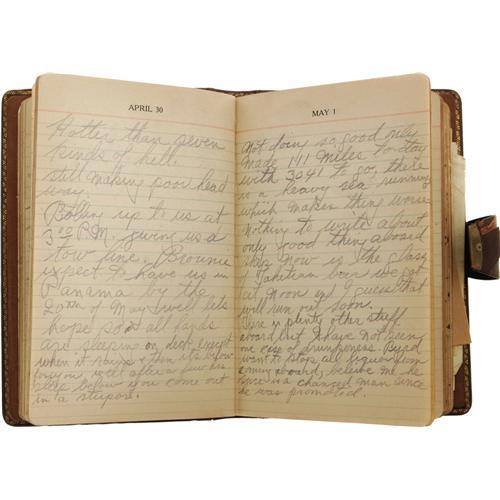 APRIL 30
Hotter than seven
kinds of hell.
Still making poor head
way.
Bolling up to us at
3 20 P.M. giving us a
tow line. Brownie
expect to have us in
Panama by the
20th of May. Well lets
hope so all hands
are sleeping on deck except
when it rains & then its below
few hrs
sleep below you come out
in a stupore.
MAY 1
Not doing so good only
Made 141 Miles to-day
with 3041 to go, there
is a heavy sea running
which makes thing worse
Nothing to write about
only good thing aboard
ship now is the glass
of Tahitian beer we get
at Noon and I guess that
will run out soon.
There is plenty other stuff
aboard but I have Not seen
one case of drunkenness. Byrd
want to stop all liquor from
coming aboard, believe me he
sure is a changed man since
he was promoted.